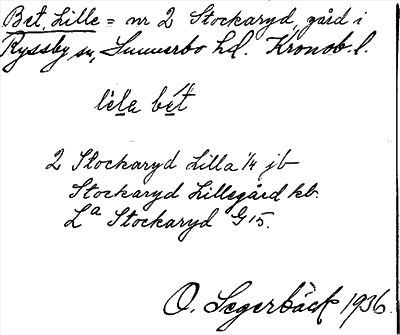 Bet, Lille = nr 2 Stockaryd, gård i
Ryssby sn, Sunnerbo hd. Kronob. l.
lìla bét
2 Stockaryd Lilla 1/4 jb
Stockaryd Lillegård kb.
La Stockaryd G 15.
O. Segerbäck 1936.